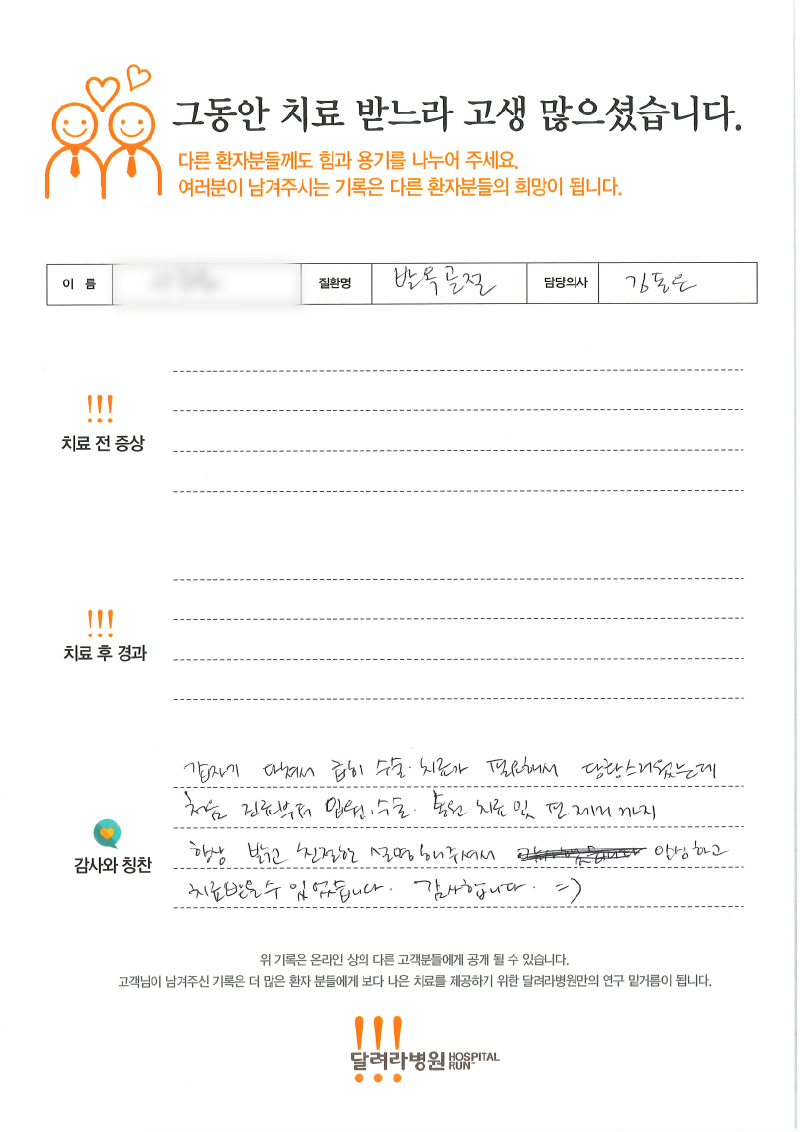 그동안 치료 받느라 고생 많으셨습니다.
다른 환자분들께도 힘과 용기를 나누어 주세요.
여러분이 남겨주시는 기록은 다른 환자분들의 희망이 됩니다.
이 름 질환명 발목골절 담당의사 김동은
!!!
치료 전 증상
!!!
치료 후 경과
갑자기 다쳐서 급히 수술·치료가 필요해서 당황스러웠는데
처음 진료부터 입원, 수술. 통원 치료 및 핀 제거 까지
항상 밝고 친절한 설명해주셔서 안심하고
치료받을 수 있었습니다. 감사합니다. =)
감사와 칭찬
위 기록은 온라인 상의 다른 고객분들에게 공개 될 수 있습니다.
고객님이 남겨주신 기록은 더 많은 환자 분들에게 보다 나은 치료를 제공하기 위한 달려라병원만의 연구 밑거름이 됩니다.
!!!
달려라병원 HOSPITAL RUN